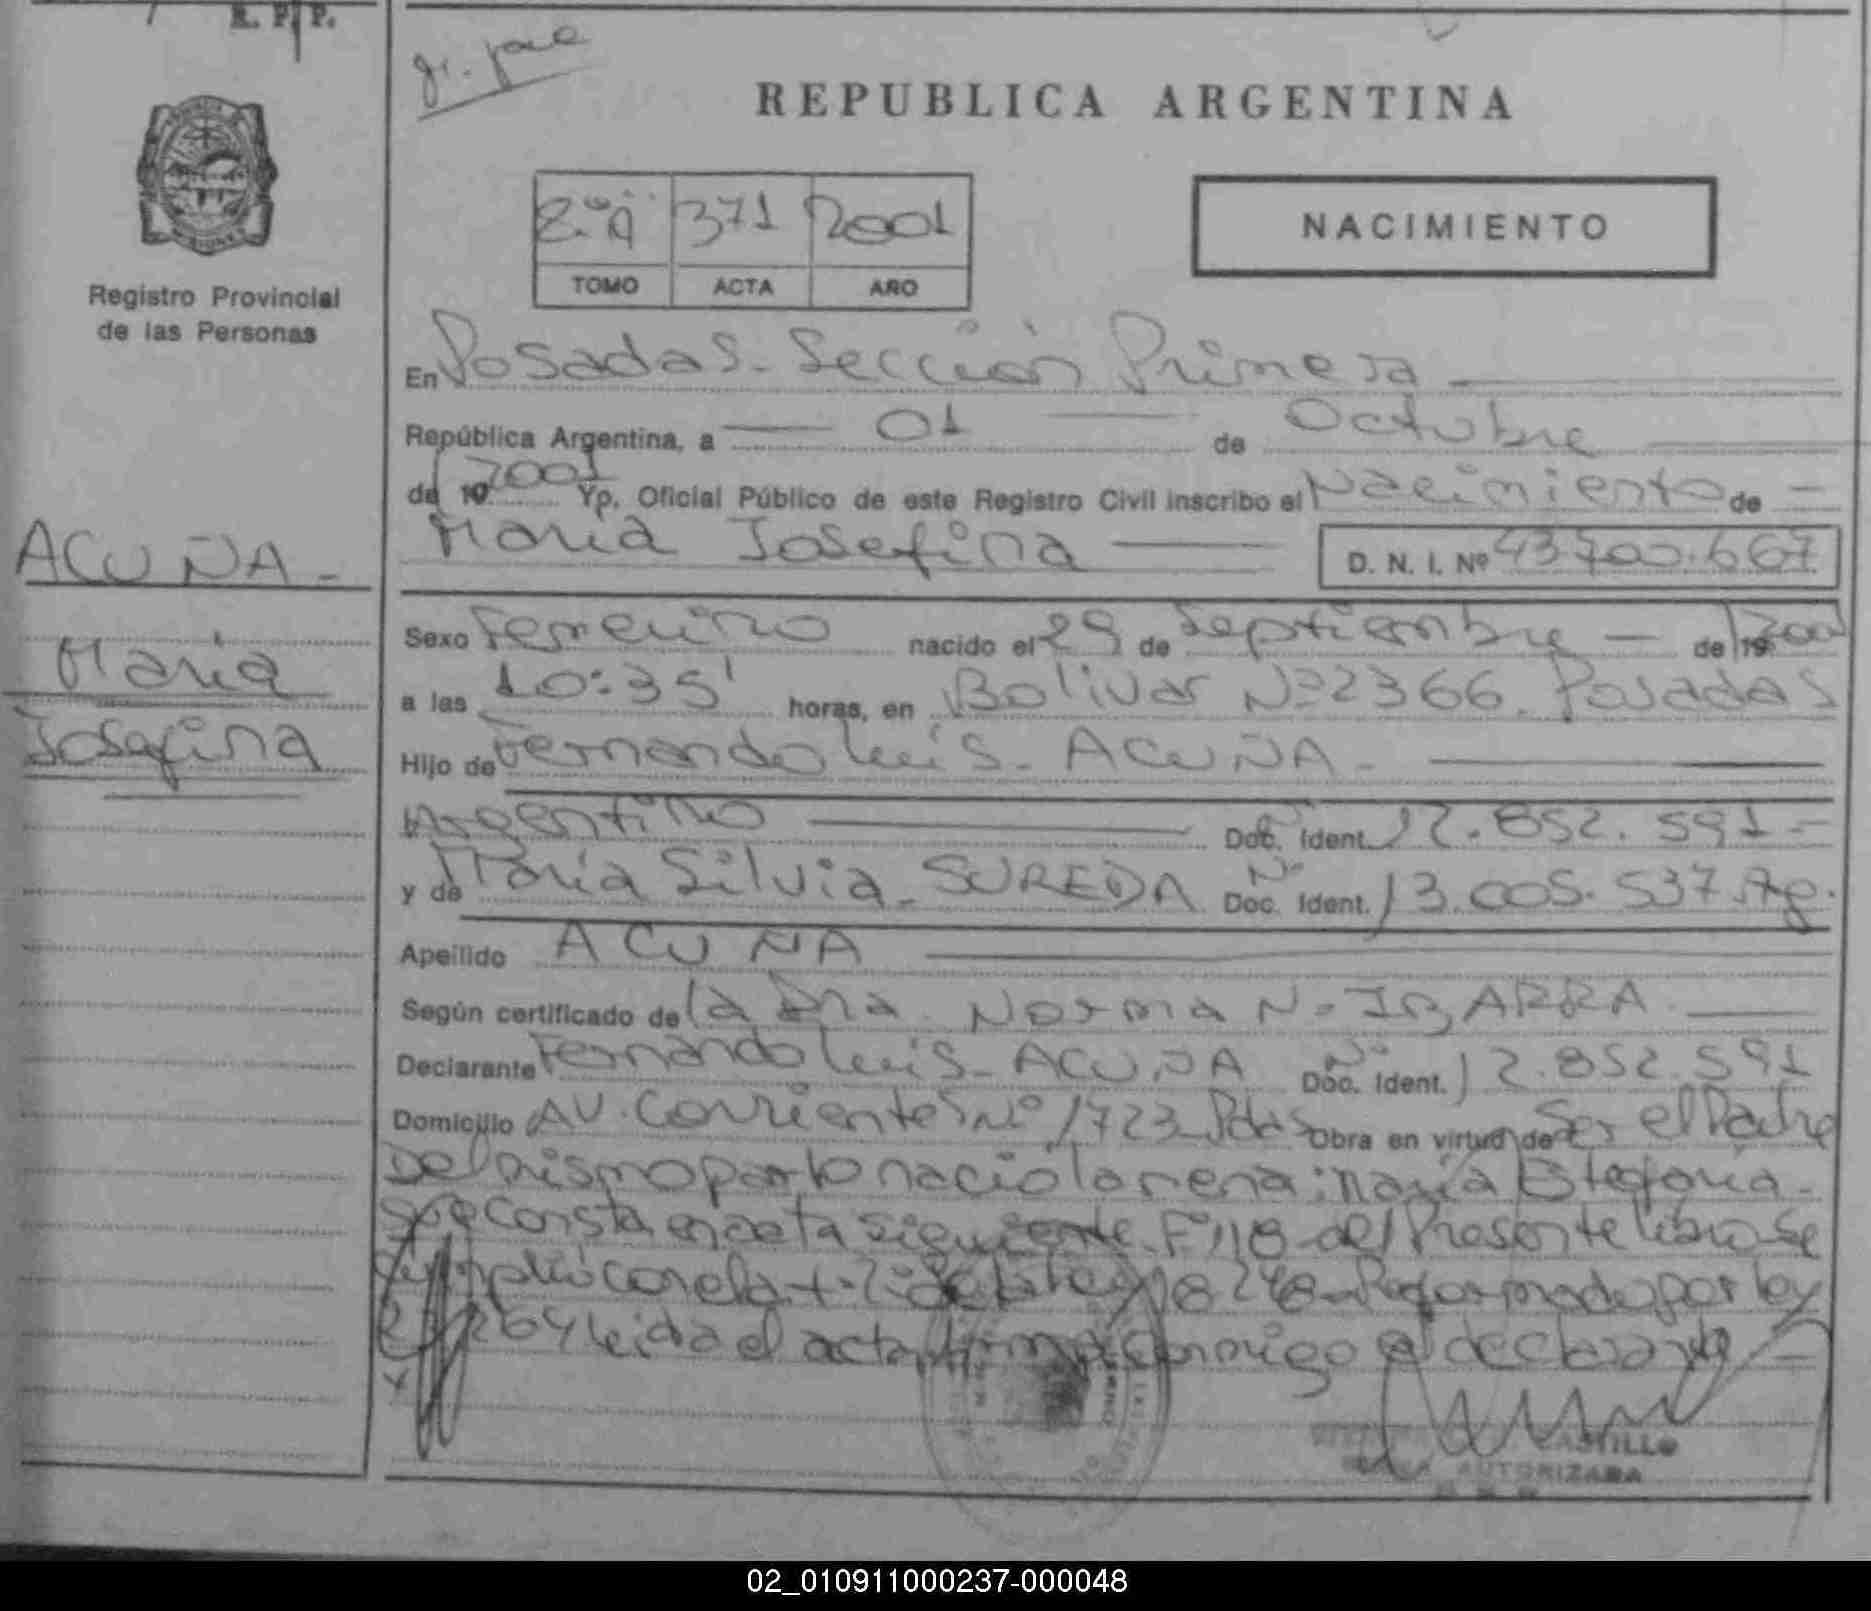 R. P. P.
REPUBLICA ARGENTINA
2º "A" 371 2001
TOMO ACTA AÑO
NACIMIENTO
Registro Provincial
de las Personas
En Posadas - Sección Primera
República Argentina, a 01 de Octubre
de 19 2001 Yo, Oficial Público de este Registro Civil inscribo el Nacimiento de
María Josefina D. N. I. Nº 43.700.667
ACUÑA -
María
Josefina
Sexo Femenino nacido el 29 de Septiembre de 19 2001
a las 10:35' horas, en Bolivar Nº 2366. Posadas
Hijo de Fernando Luis - ACUÑA -
Argentino Nº Doc. Ident. 12.852.591 -
y de María Silvia - SUREDA Nº Doc. Ident. 13.005.537 Arg.
Apellido ACUÑA
Según certificado de la Dra. Norma N. IBARRA
Declarante Fernando Luis - ACUÑA Nº Doc. Ident. 12.852.591
Domicilio AV. Corrientes Nº 1723 - Pdas Obra en virtud de Ser el Padre
Del mismo parto nació la nena: María Estefanía -
que consta en acta siguiente Fº 118 del Presente libro se
cumplió con el art. 2º de la ley 18248 - Reformado por ley
leida el acta, firma conmigo el declarante -
CASTILLO
FIRMA AUTORIZADA
02_010911000237-000048